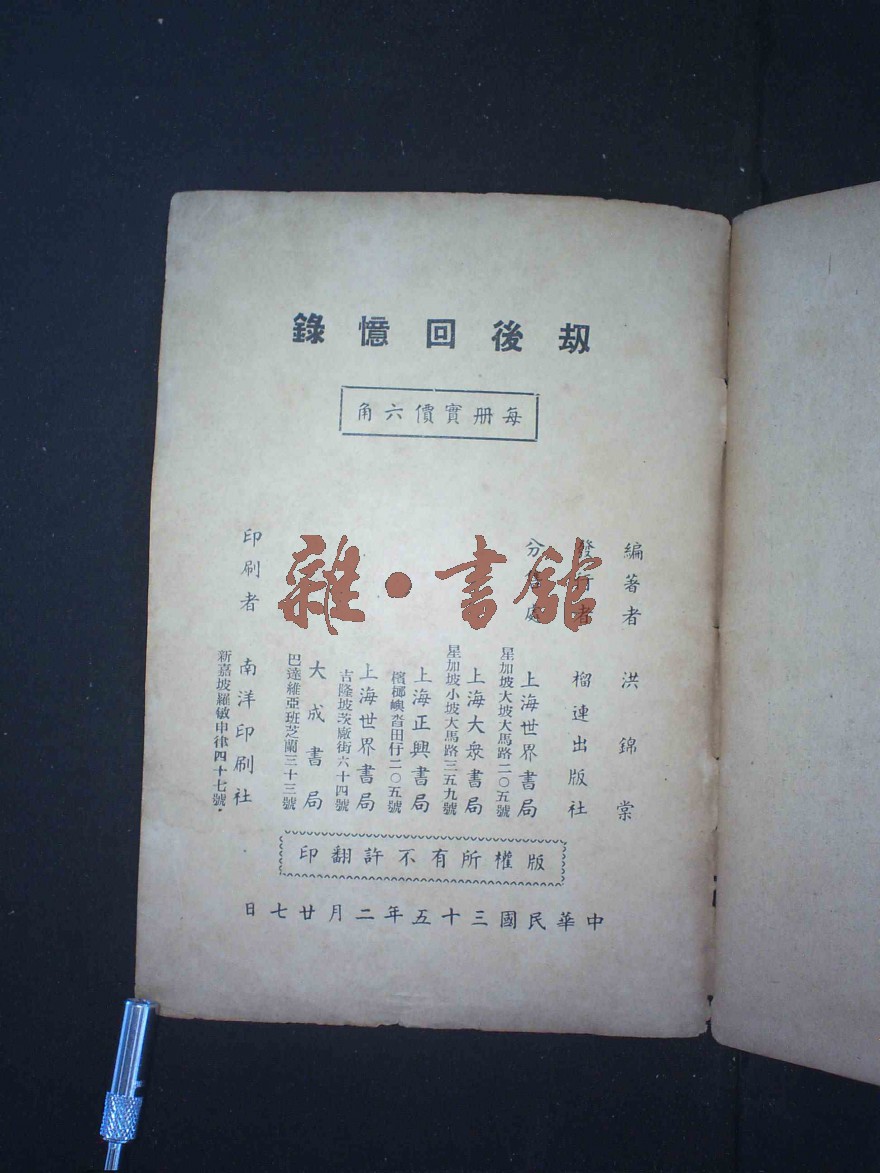 刼後回憶錄
每册實價六角
編著者 洪錦棠
發行者 榴連出版社
分售處
上海世界書局
星加坡大坡大馬路二〇五號
上海大衆書局
星加坡小坡大馬路三五九號
上海正興書局
檳榔嶼沓田仔二〇五號
上海世界書局
吉隆坡茨廠街六十四號
大成書局
巴達維亞班芝蘭三十三號
印刷者 南洋印刷社
新嘉坡羅敏申律四十七號·
版權所有不許翻印
中華民國三十五年二月廿七日
雜·書館